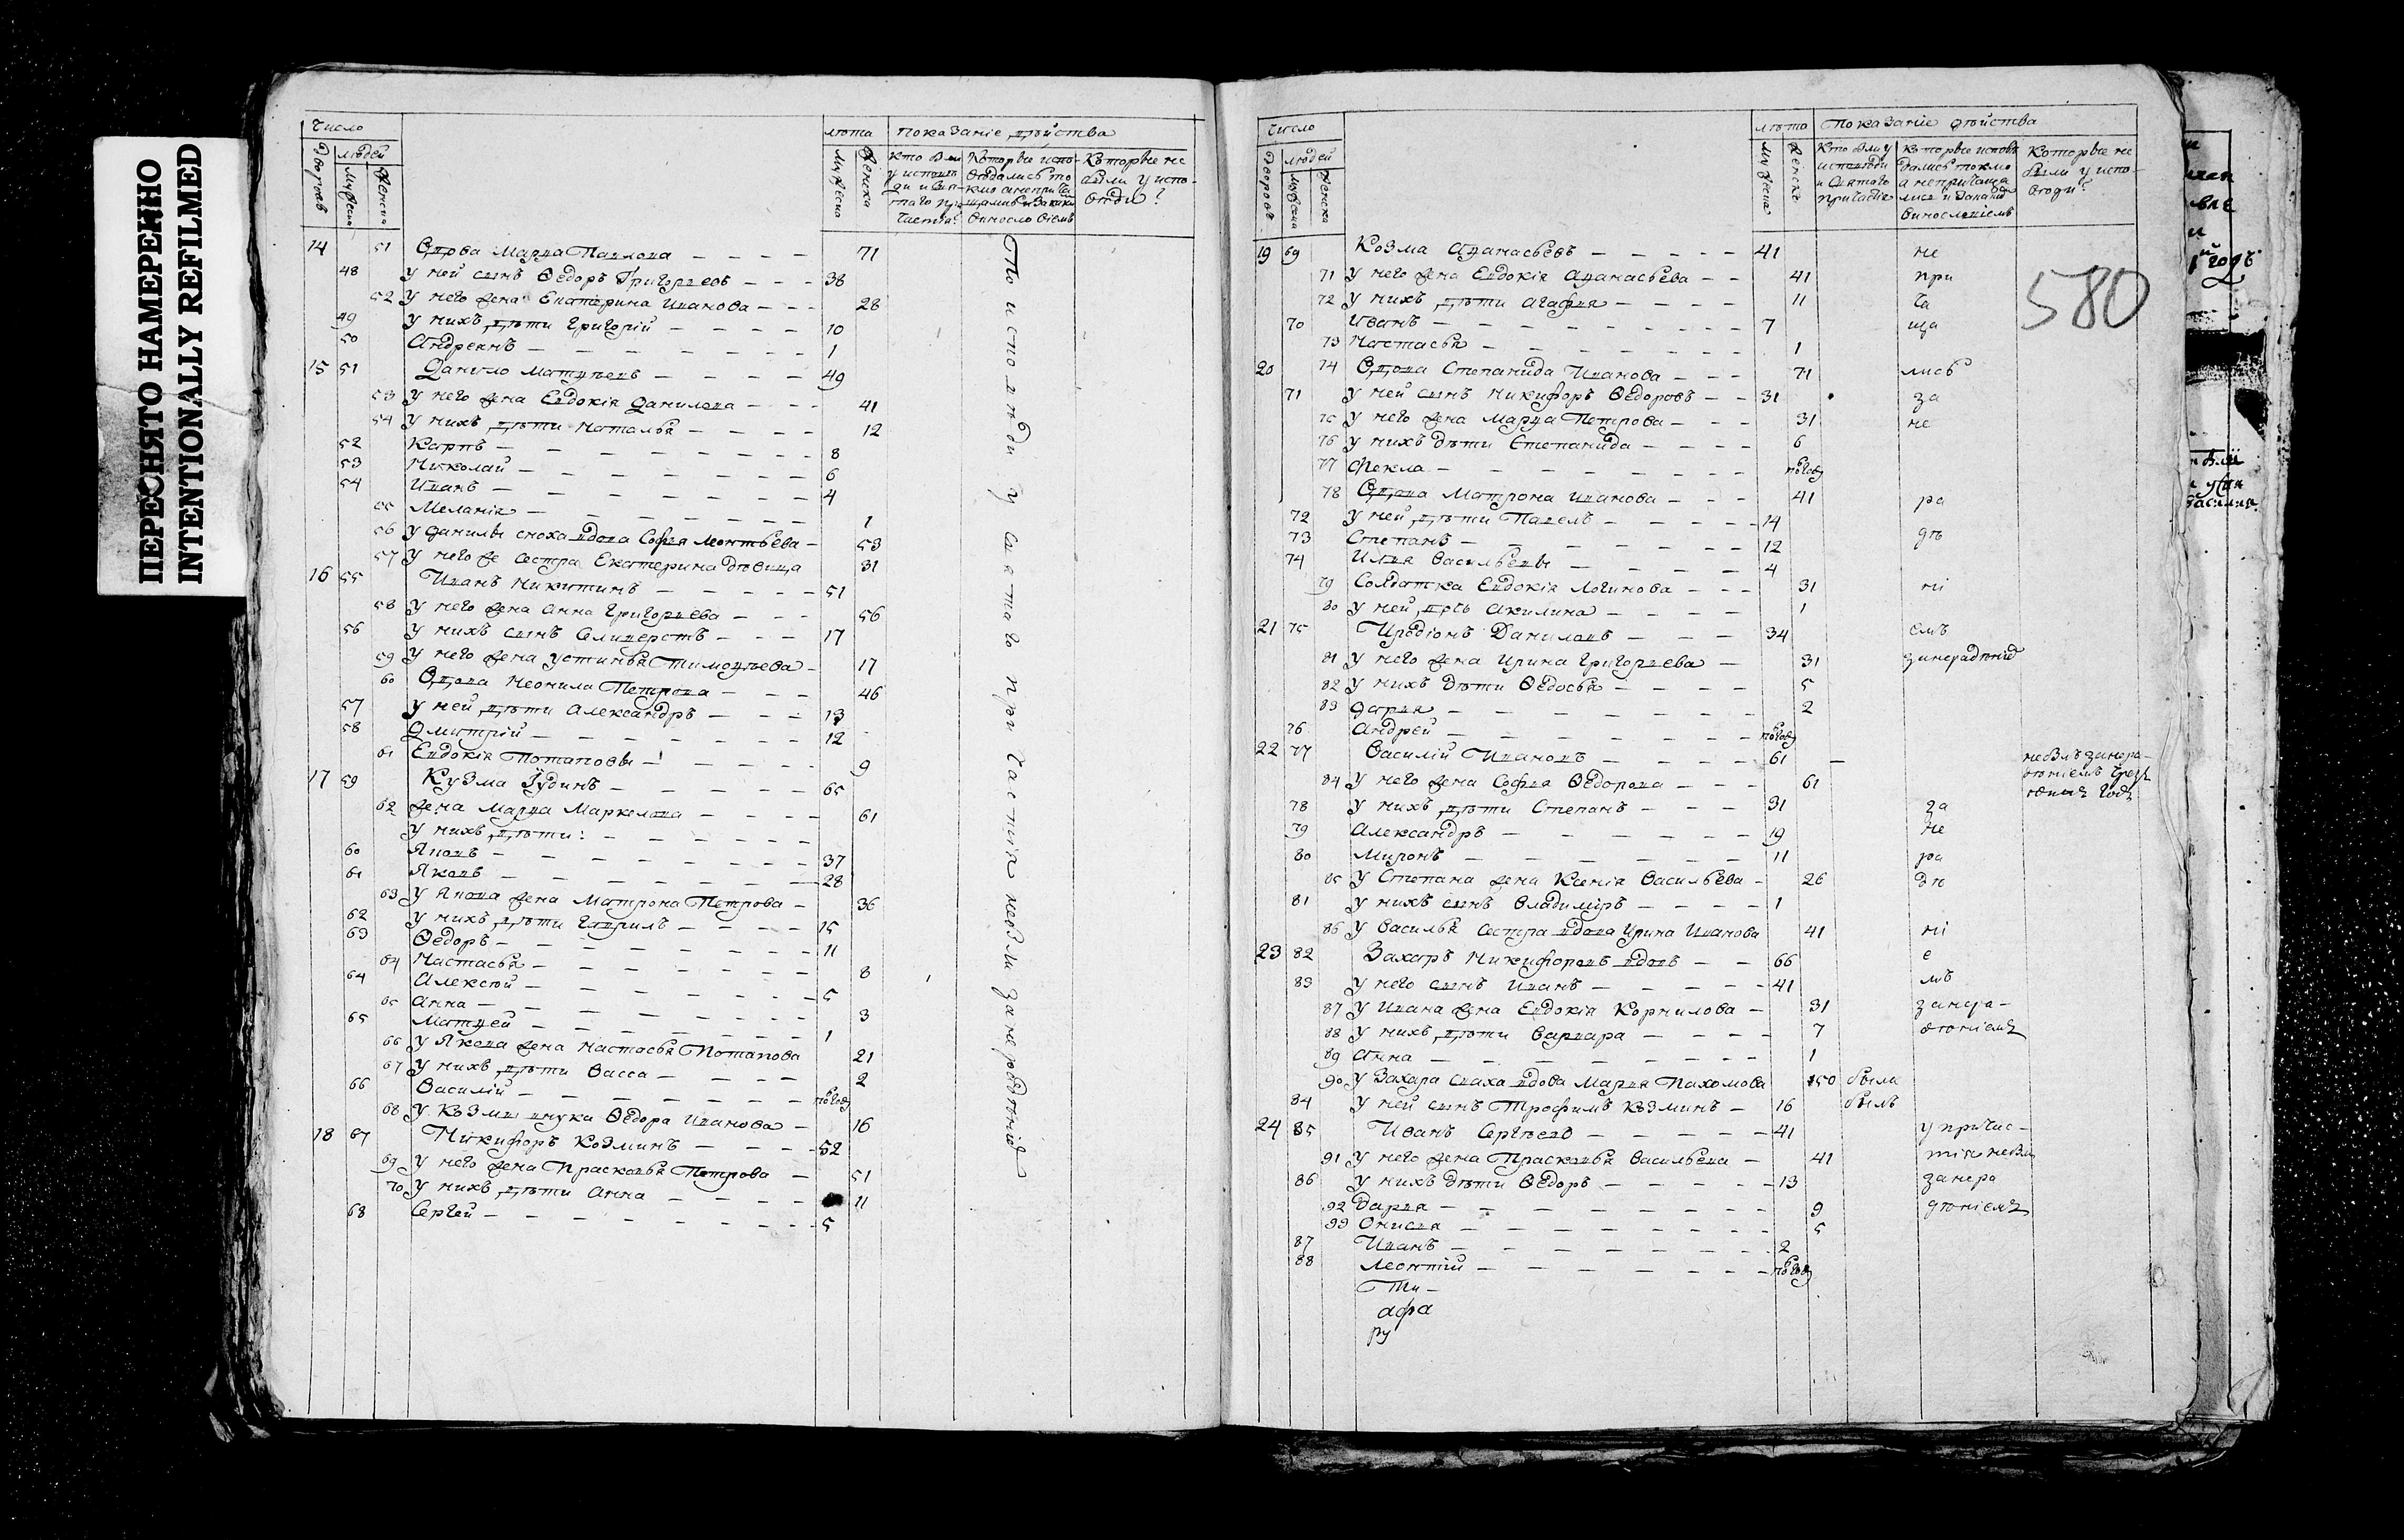 ПЕРЕСНЯТО НАМЕРЕННО
INTENTIONALLY REFILMED
Число лѣта показаніе дѣйства
Дворовъ людей
Мужеска Женска Мужеска Женска
Которые не были у исповѣди?
14 51 Вдова Марѳа Павлова — 71
48 У ней сынъ Ѳедоръ Григорьевъ — 38
52 У него жена Екатерина Иванова — 28
49 У нихъ дѣти Григорій — 10
50 Андреянъ — 1
15 51 Данило Матѳѣевъ — 49
53 У него жена Евдокія Данилова — 41
54 У нихъ дѣти Наталья — 12
52 Карпъ — 8
53 Николай — 6
54 Иванъ — 4
55 Меланія — 1
56 У Данилы сноха вдова Софья Леонтьева — 53
57 У него же сестра Екатерина дѣвица 31
16 55 Иванъ Никитинъ — 51
58 У него жена Анна Григорьева — 56
56 У нихъ сынъ Селиверстъ — 17
59 У него жена Устинья Тимоѳѣева — 17
60 Вдова Неонила Петрова — 46
57 У ней дѣти Александръ — 13
58 Дмитрій — 12
61 Евдокія Потаповы — 9
17 59 Кузма Юдинъ — 65
62 Жена Марѳа Маркелова — 61
У нихъ дѣти:
60 Яковъ — 37
61 Яковъ — 28
63 У Якова жена Матрона Петрова — 36
62 У нихъ дѣти Гаврилъ — 15
63 Ѳедоръ — 11
64 Настасья — 8
64 Алексѣй — 5
65 Анна — 3
65 Матѳей — 1
66 У Якова жена Настасья Потапова 21
67 У нихъ дѣти Васса — 2
66 Василій — полгод
68 У Козмы внука Ѳедора Иванова — 16
18 67 Никифоръ Козминъ — 52
69 У него жена Прасковья Петрова — 51
70 У нихъ дѣти Анна — 11
68 Сергей — 5
По исповѣди у святаго причастія небыли занерадѣніе
Число лѣто Показаніе дѣйства
Дворовъ людей
Мужеска Женска Мужеска Женска
Кто былъ у исповѣди и святаго причастія
Которые исповѣдались токмо а непричащались и за каки винословіемъ
Которые не были у исповѣди?
580
19 69 Козма Аѳанасьевъ — 41 не
71 У него жена Евдокія Аѳанасьева — 41 при
72 У нихъ дѣти Агафья — 11 ча
70 Иванъ — 7 ща
73 Настасья — 1
20 74 Вдова Степанида Иванова — 71 лись
71 У ней сынъ Никифоръ Ѳедоровъ — 31 за
75 У него жена Марѳа Петрова — 31 не
76 У нихъ дѣти Степанида — 6
77 Фекла — полгод
78 Вдова Матрона Иванова — 41 ра
72 У ней дѣти Павелъ — 14
73 Степанъ — 12 дѣ
74 Илья Васильевы — 4
79 Солдатка Евдокія Логинова — 31 ні
80 У ней дочь Акилина — 1
21 75 Иродіонъ Даниловъ — 34 емъ
81 У него жена Ирина Григорьева — 31 занерадѣніе
82 У нихъ дѣти Ѳедосья — 5
83 Дарья — 2
76 Андрей — полгод
22 77 Василій Ивановъ — 61 — небылъ занера-
84 У него жена Софья Ѳедорова — 61 дѣніемъ
78 У нихъ дѣти Степанъ — 31 за
79 Александръ — 19 не
80 Миронъ — 11 ра
85 У Степана жена Ксенія Васильева — 26 дѣ
81 У нихъ сынъ Владиміръ — 1
86 У Василья сестра вдова Ирина Иванова 41 ні
23 82 Захаръ Никифоровъ вдовъ — 66 е
83 У него сынъ Иванъ — 41 мъ
87 У Ивана жена Евдокія Корнилова — 31 занера-
88 У нихъ дѣти Варвара — 7 дѣніемъ
89 Анна — 1
90 У Захара снаха вдова Марья Пахомова 50 была
84 У ней сынъ Трофимъ Козминъ — 16 былъ
24 85 Иванъ Сергѣевъ — 41 у причас-
91 У него жена Прасковья Васильева — 41 тія небыл
86 У нихъ дѣти Ѳедоръ — 13 занера
92 Дарья — 9 дѣніемъ
93 Онисья — 5
87 Иванъ — 2
88 Леонтій — полгод
Ти-
афа
ру